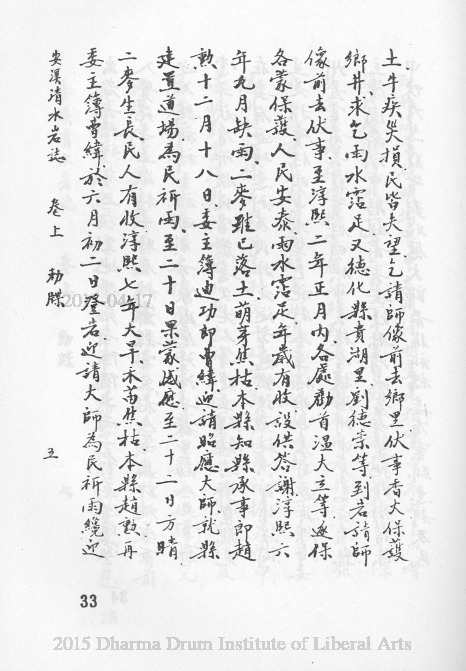 土牛疾災損民皆失望乞請師像前去鄉里伏事香火保護
鄉井求乞雨水霑足又德化縣貴湖里劉德崇等到岩請師
像前去伏事至淳熙二年正月內各處勸首溫大立等逐保
各蒙保護人民安泰雨水霑足年歲有收設供答謝淳熙六
年九月缺雨二麥雖已落土萌芽焦枯本縣知縣承事郎趙
勲十二月十八日委主簿迪功郎曹緯迎請昭應大師就縣
建置道場為民祈雨至二十日果蒙感應至二十二日方晴
二麥生長民人有收淳熙七年大旱禾苗焦枯本縣趙勲再
委主簿曹緯於六月初二日登岩迎請大師為民祈雨纔迎
安溪清水岩誌 卷上 勅牒 五
33
2015 Dharma Drum Institute of Liberal Arts